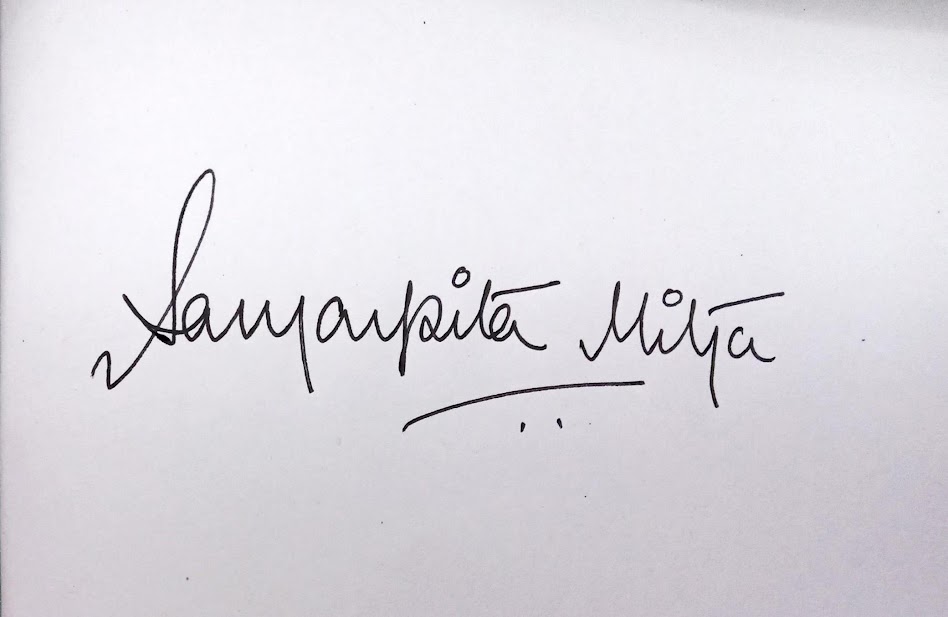 Samarpita Mitra